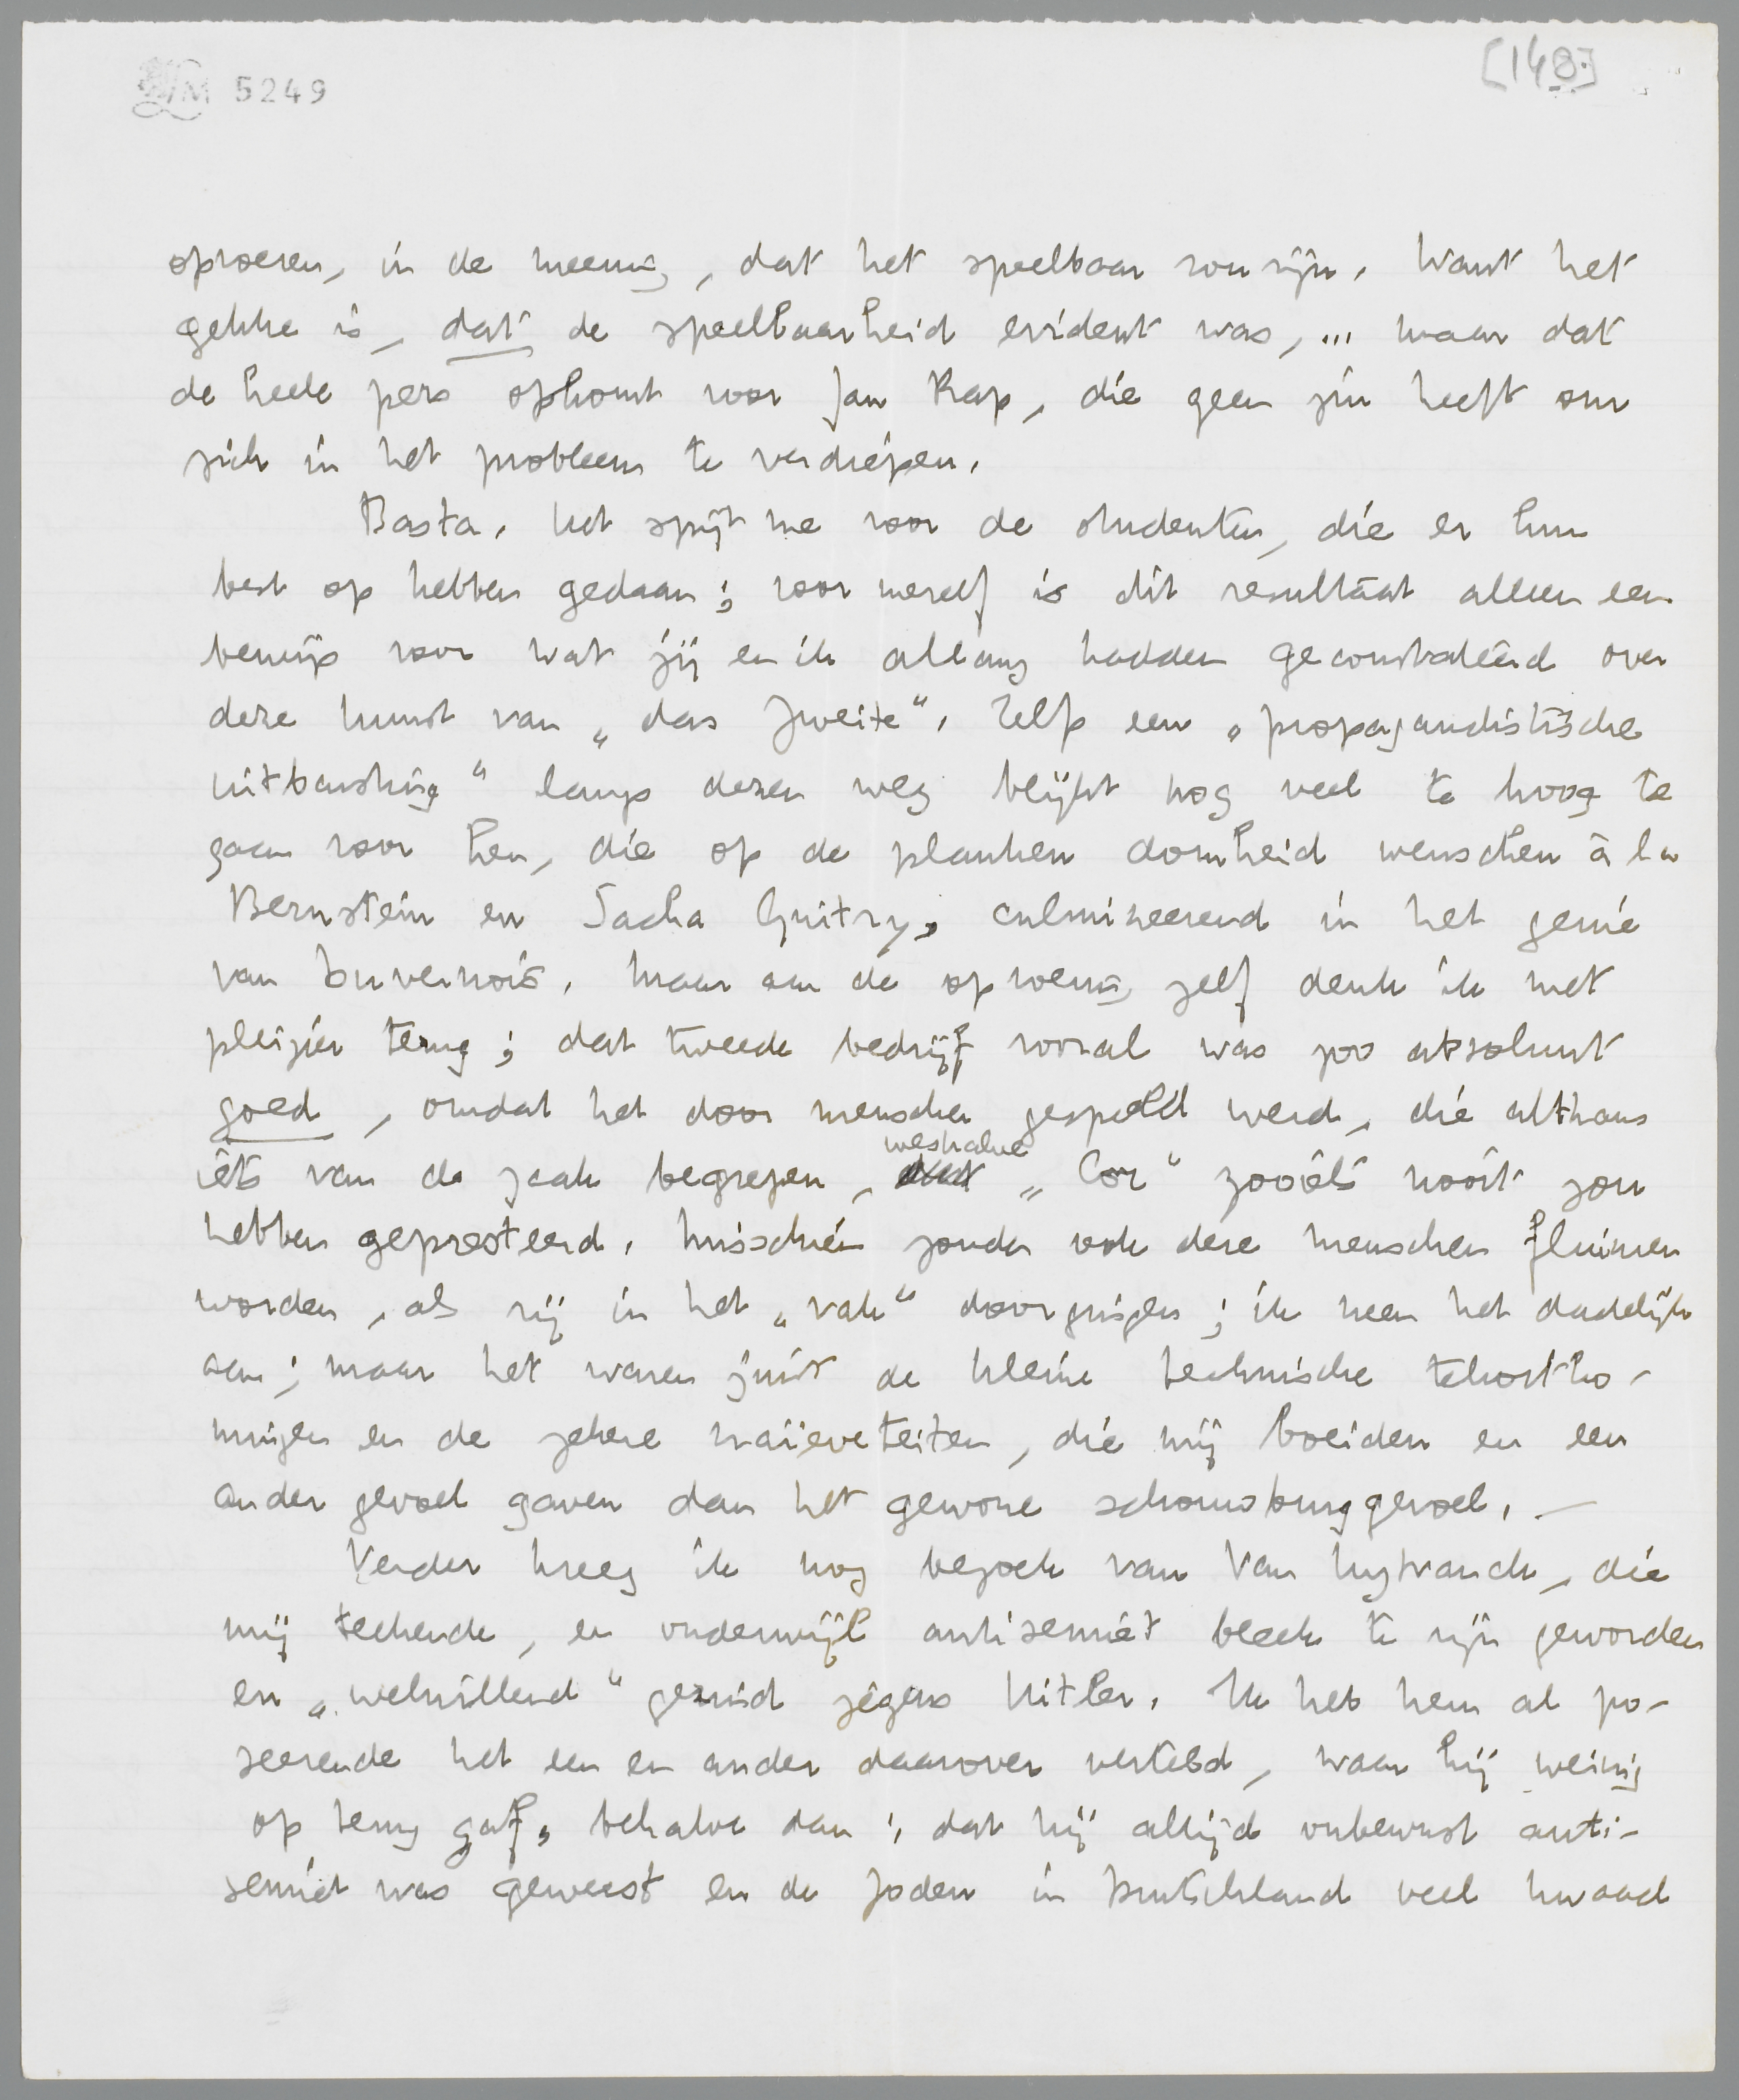 LM 5249
[148]
opvoeren, in de meening, dat het speelbaar zou zijn. Want het
gekke is, dat de speelbaarheid evident was, ... maar dat
de heele pers opkomt voor Jan Rap, die geen zin heeft om
zich in het probleem te verdiepen.
Basta. Het spijt me voor de studenten, die er hun
best op hebben gedaan; voor mezelf is dit resultaat alleen een
bewijs voor wat jij en ik allang hadden geconstateerd over
deze kunst van „das Zweite”. Zelfs een „propagandistische
uitbarsting” langs dezen weg blijkt nog veel te hoog te
gaan voor hen, die op de planken domheid wenschen à la
Bernstein en Sacha Guitry, culmineerend in het genie
van Duvernois. Maar aan de opvoering zelf denk ik met
pleizier terug; dat tweede bedrijf vooral was zoo absoluut
goed, omdat het door menschen gespeeld werd, die althans
iets van de zaak begrepen, weshalve „Cor” zooiets nooit zou
hebben gepresteerd. Misschien zouden ook deze menschen fluimen
worden, als zij in het „vak” doorgingen; ik neem het dadelijk
aan; maar het waren juist de kleine technische tekortko-
mingen en de zekere naïeveteiten, die mij boeiden en een
ander gevoel gaven dan het gewone schouwburggevoel. —
Verder kreeg ik nog bezoek van Van Uytvanck, die
mij teekende, en onderwijl antisemiet bleek te zijn geworden
en „welwillend” gezind jegens Hitler. Ik heb hem al po-
seerende het een en ander daarover verteld, waar hij weinig
op terug gaf, behalve dan, dat hij altijd onbewust anti-
semiet was geweest en de Joden in Duitschland veel kwaad